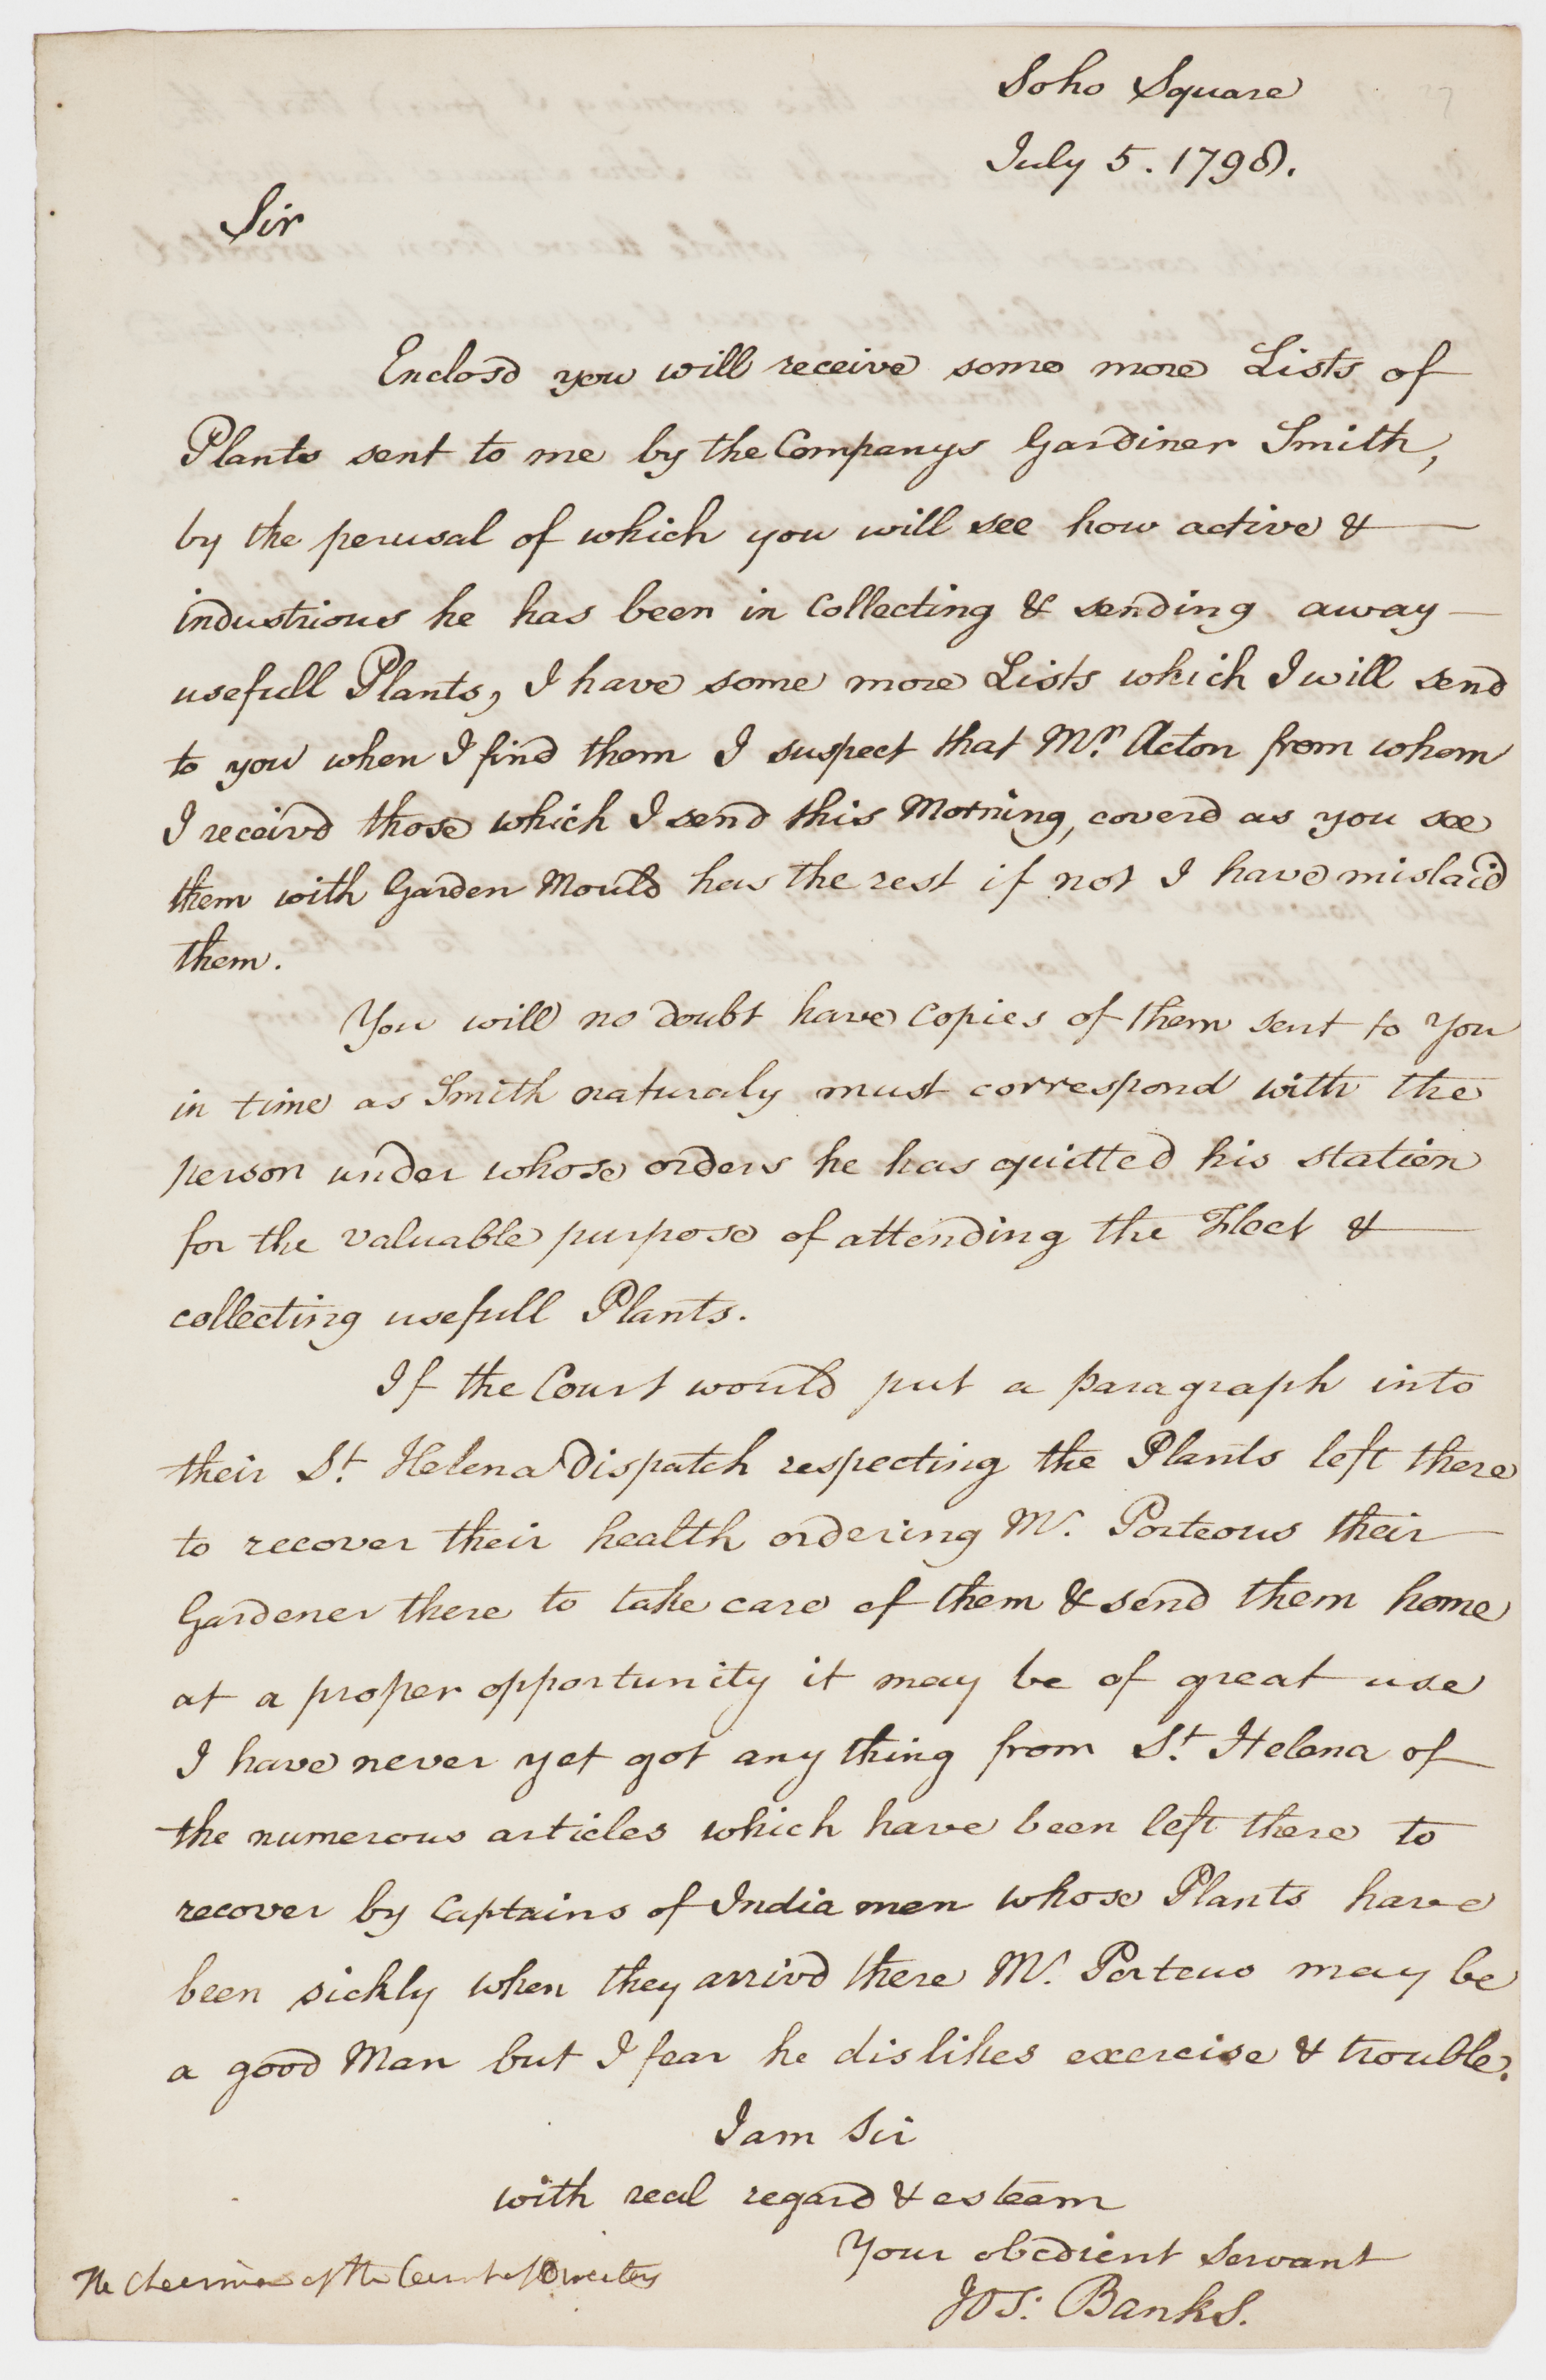 Soho Square
July 5. 1798.
Sir
Enclosd you will receive some more Lists of
Plants sent to me by the Companys Gardiner Smith,
by the perusal of which you will see how active &
industrious he has been in Collecting & sending away
usefull Plants, I have some more Lists which I will send
to you when I find them I suspect that Mr. Aeton from whom
I receivd those which I send this Morning, coverd as you see
them with Garden Mould has the rest if not I have mislaid
them.
You will no doubt have Copies of them sent to You
in time as Smith naturaly must correspond with the
person under whose orders he has quitted his station
for the valuable purpose of attending the Fleet &
collecting usefull Plants.
If the Court would put a paragraph into
their St. Helena Dispatch respecting the Plants left there
to recover their health ordering Mr. Porteous their
Gardener there to take care of them & send them home
at a proper opportunity it may be of great use
I have never yet got any thing from St. Helena of
the numerous articles which have been left there to
recover by Captains of India men whose Plants have
been sickly when they arrivd there Mr. Porteus may be
a good Man but I fear he dislikes exercise & trouble.
I am Sir
with real regard & esteem
Your obedient Servant
The Chairman of the Court of Directors
Jos: Banks.